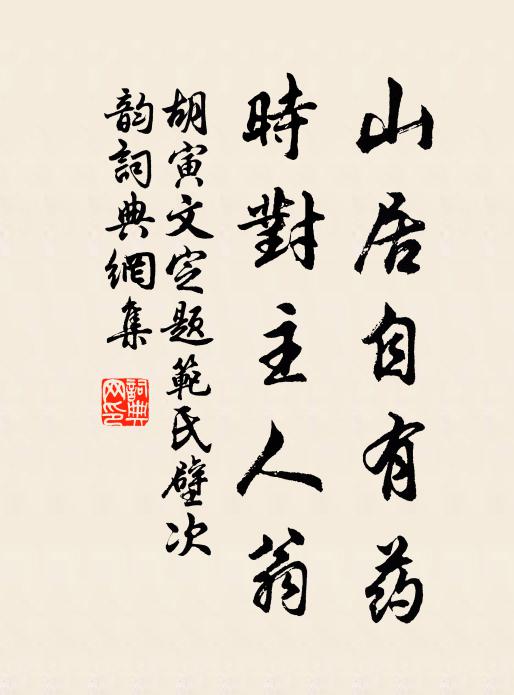 山居自有药
時對主人翁
胡寅文定题範氏壁次
韵詞典網集
詞典网印